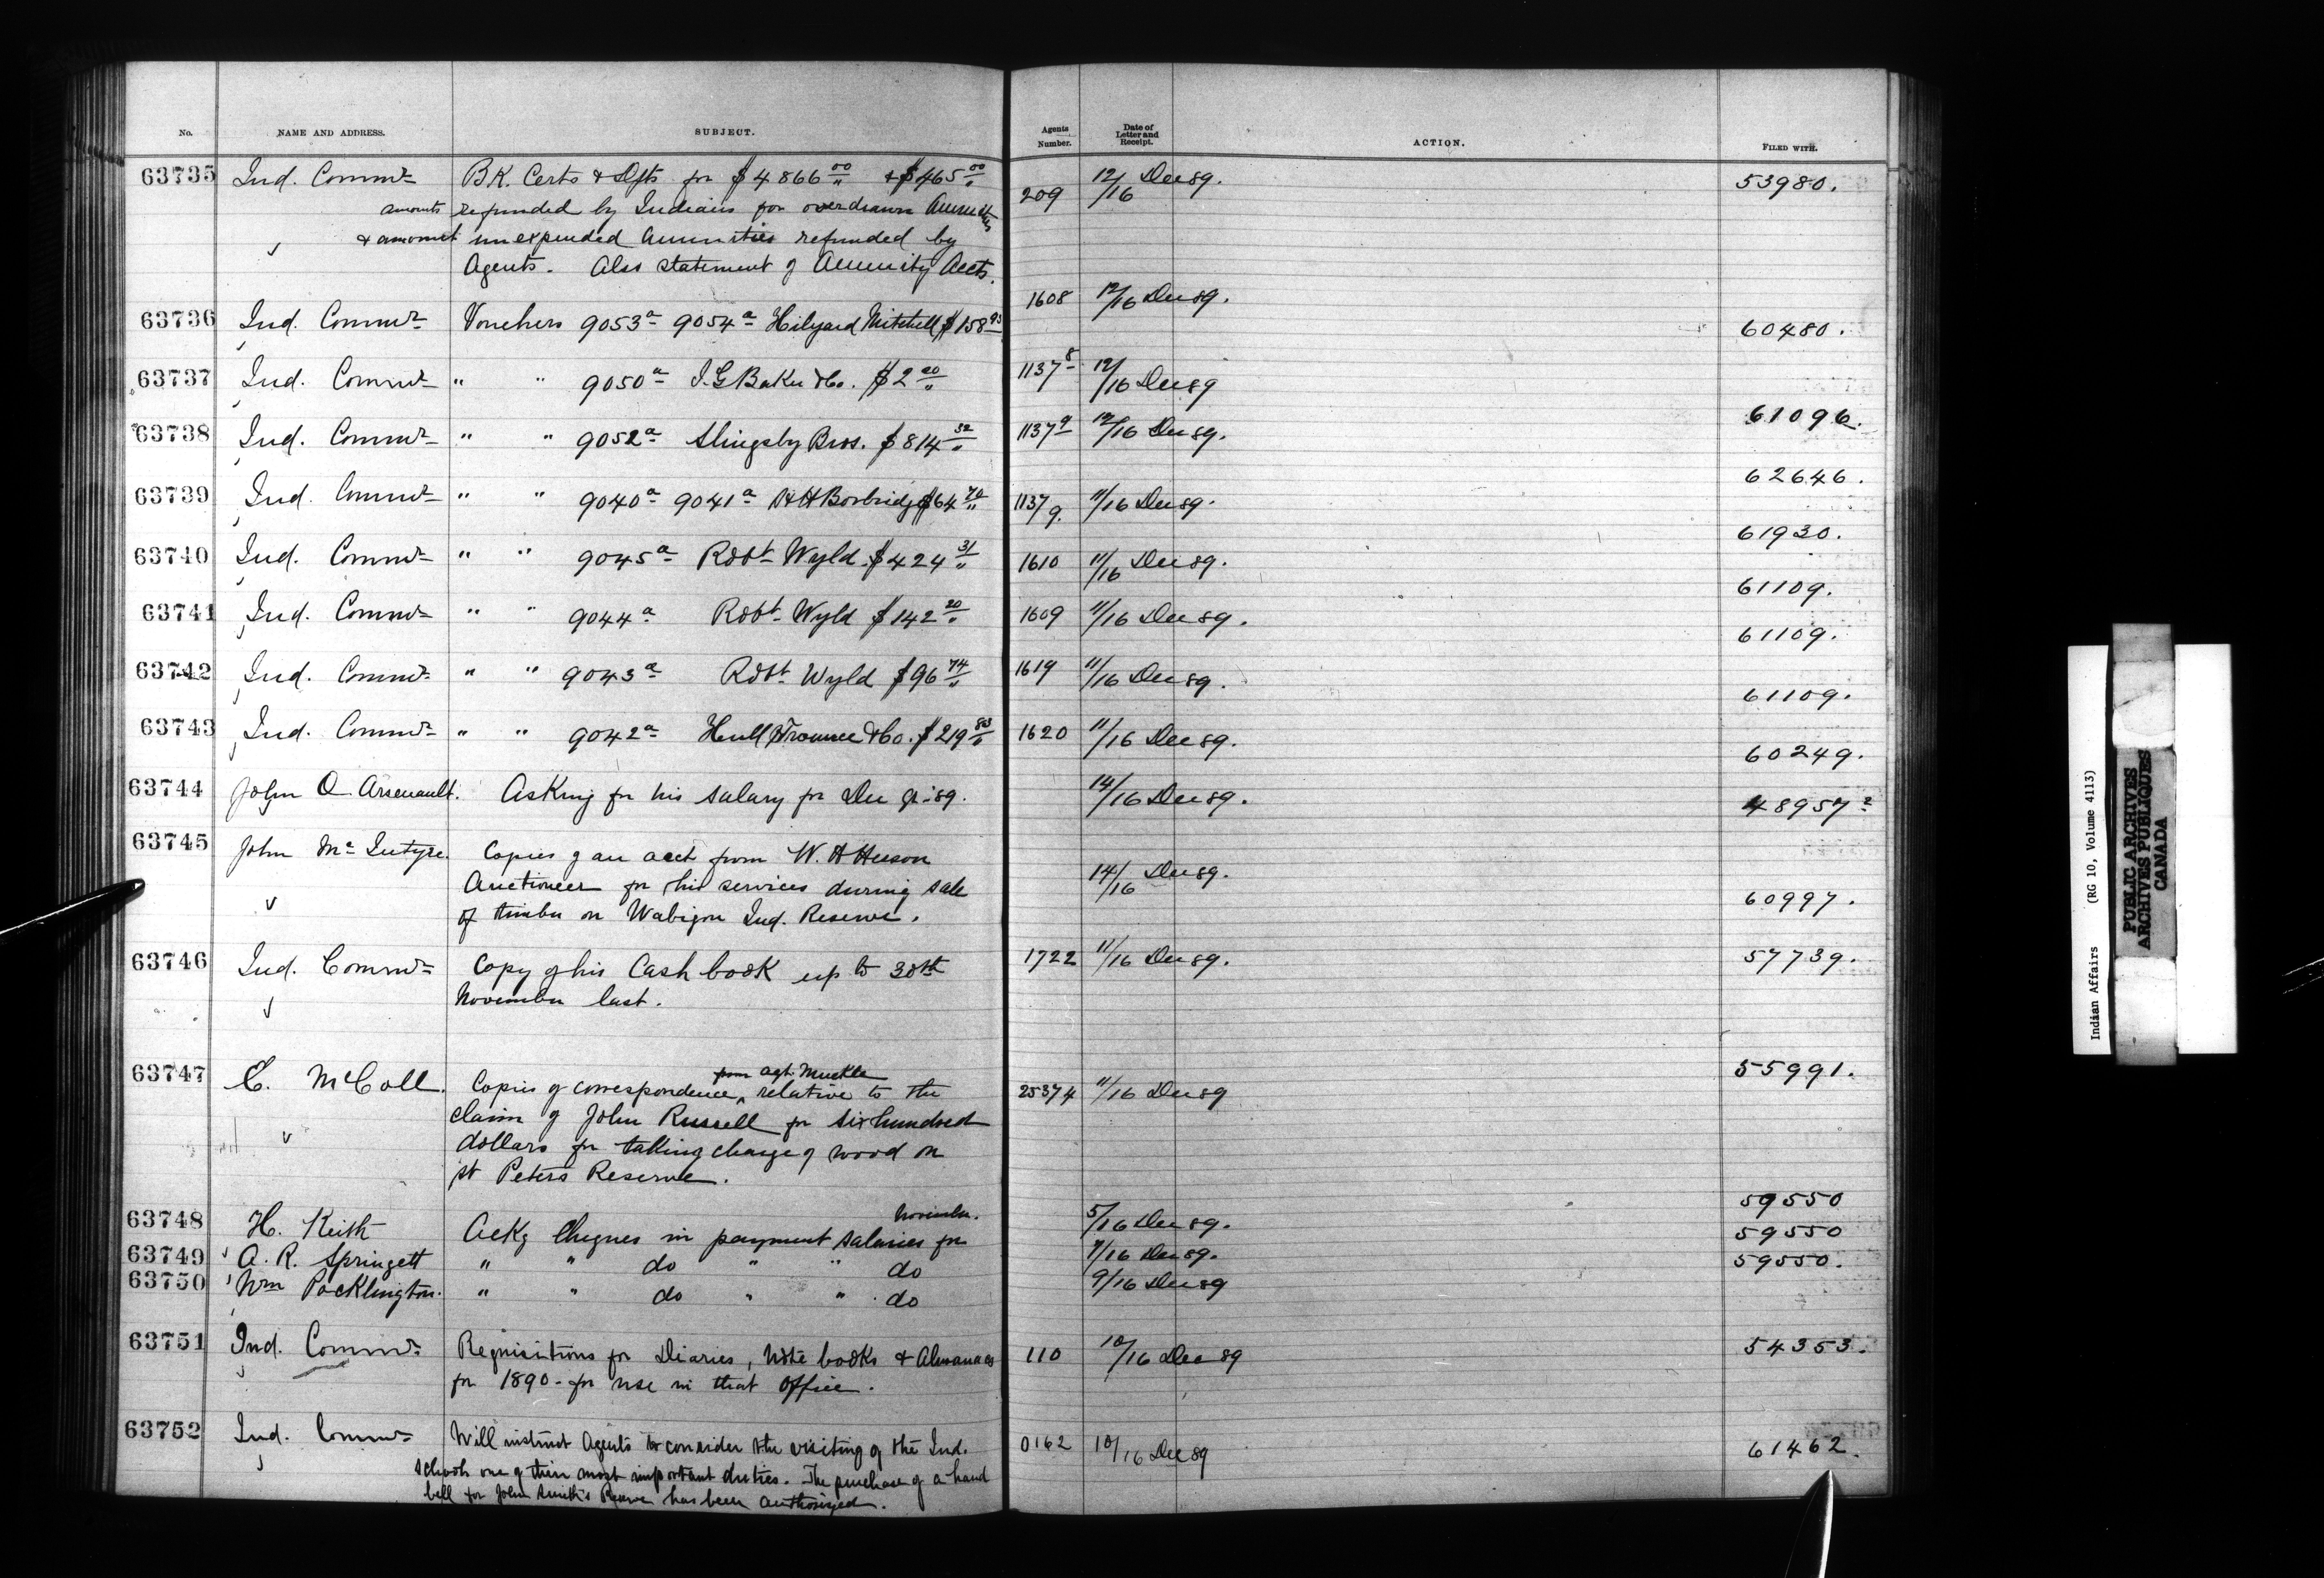 No. NAME AND ADDRESS. SUBJECT. Agents Number. Date of Letter and Receipt. ACTION. FILED WITH.
63735 Ind. Commr B.K. Certs & Dfts for $4866 00 & $465 00 209 12/16 Dec 89. 53980.
amounts refunded by Indians for overdrawn Annuities
& amount unexpended annuities refunded by
Agents. Also statement of Annuity Accts.
63736 Ind. Commr Vouchers 9053a 9054a Hilyard Mitchell $158 93 1608 12/16 Dec 89. 60480.
63737 Ind. Commr " " 9050a I.G Baker & Co. $2 00 1137 8 12/16 Dec 89 61096.
63738 Ind. Commr " " 9052a Slingsby Bros. $814 32 1137 9 12/16 Dec 89. 62646.
63739 Ind. Commr " " 9040a 9041a H H Borbridge $64 70 1137/9. 11/16 Dec 89. 61930.
63740 Ind. Commr " " 9045a Robt Wyld $424 31 1610 11/16 Dec 89. 61109.
63741 Ind. Commr " " 9044a Robt Wyld $142 20 1609 11/16 Dec 89. 61109.
63742 Ind. Commr " " 9043a Robt Wyld $96 74 1619 11/16 Dec 89. 61109.
63743 Ind. Commr " " 9042a Hull & Co. $219 83 1620 11/16 Dec 89. 60249.
63744 John O Arsenault. Asking for his salary for Dec qr 89. 14/16 Dec 89. 48957-2
63745 John McIntyre. Copies of an acct from W. A
Auctioneer for his services during sale 14/16 Dec 89.
of timber on Wabigon Ind. Reserve. 60997.
63746 Ind. Commr Copy of his Cash book up to 30th 1722 11/16 Dec 89. 57739.
November last.
63747 E. McColl. Copies of correspondence from agt. Muckle relative to the 25374 11/16 Dec 89 55991.
claim of John Russell for six hundred
dollars for taking charge of wood on
St Peters Reserve.
63748 H. Keith Ackg Cheques in payment salaries for November. 5/16 Dec 89. 59550
63749 A. R. Springett " " do " " do 7/16 Dec 89. 59550
63750 Wm Pocklington. " " do " " do 9/16 Dec 89 59550.
63751 Ind. Commr Requisitions for Diaries, Note books & Almanacs 110 10/16 Dec 89 54353.
for 1890 - for use in that Office.
63752 Ind. Commr Will instruct Agents to consider the visiting of the Ind. 0162 10/16 Dec 89 61462.
schools one of their most important duties. The purchase of a hand
bell for John Smith's Reserve has been authorized.
Indian Affairs (RG 10, Volume 4113)
PUBLIC ARCHIVES
ARCHIVES PUBLIQUES
CANADA